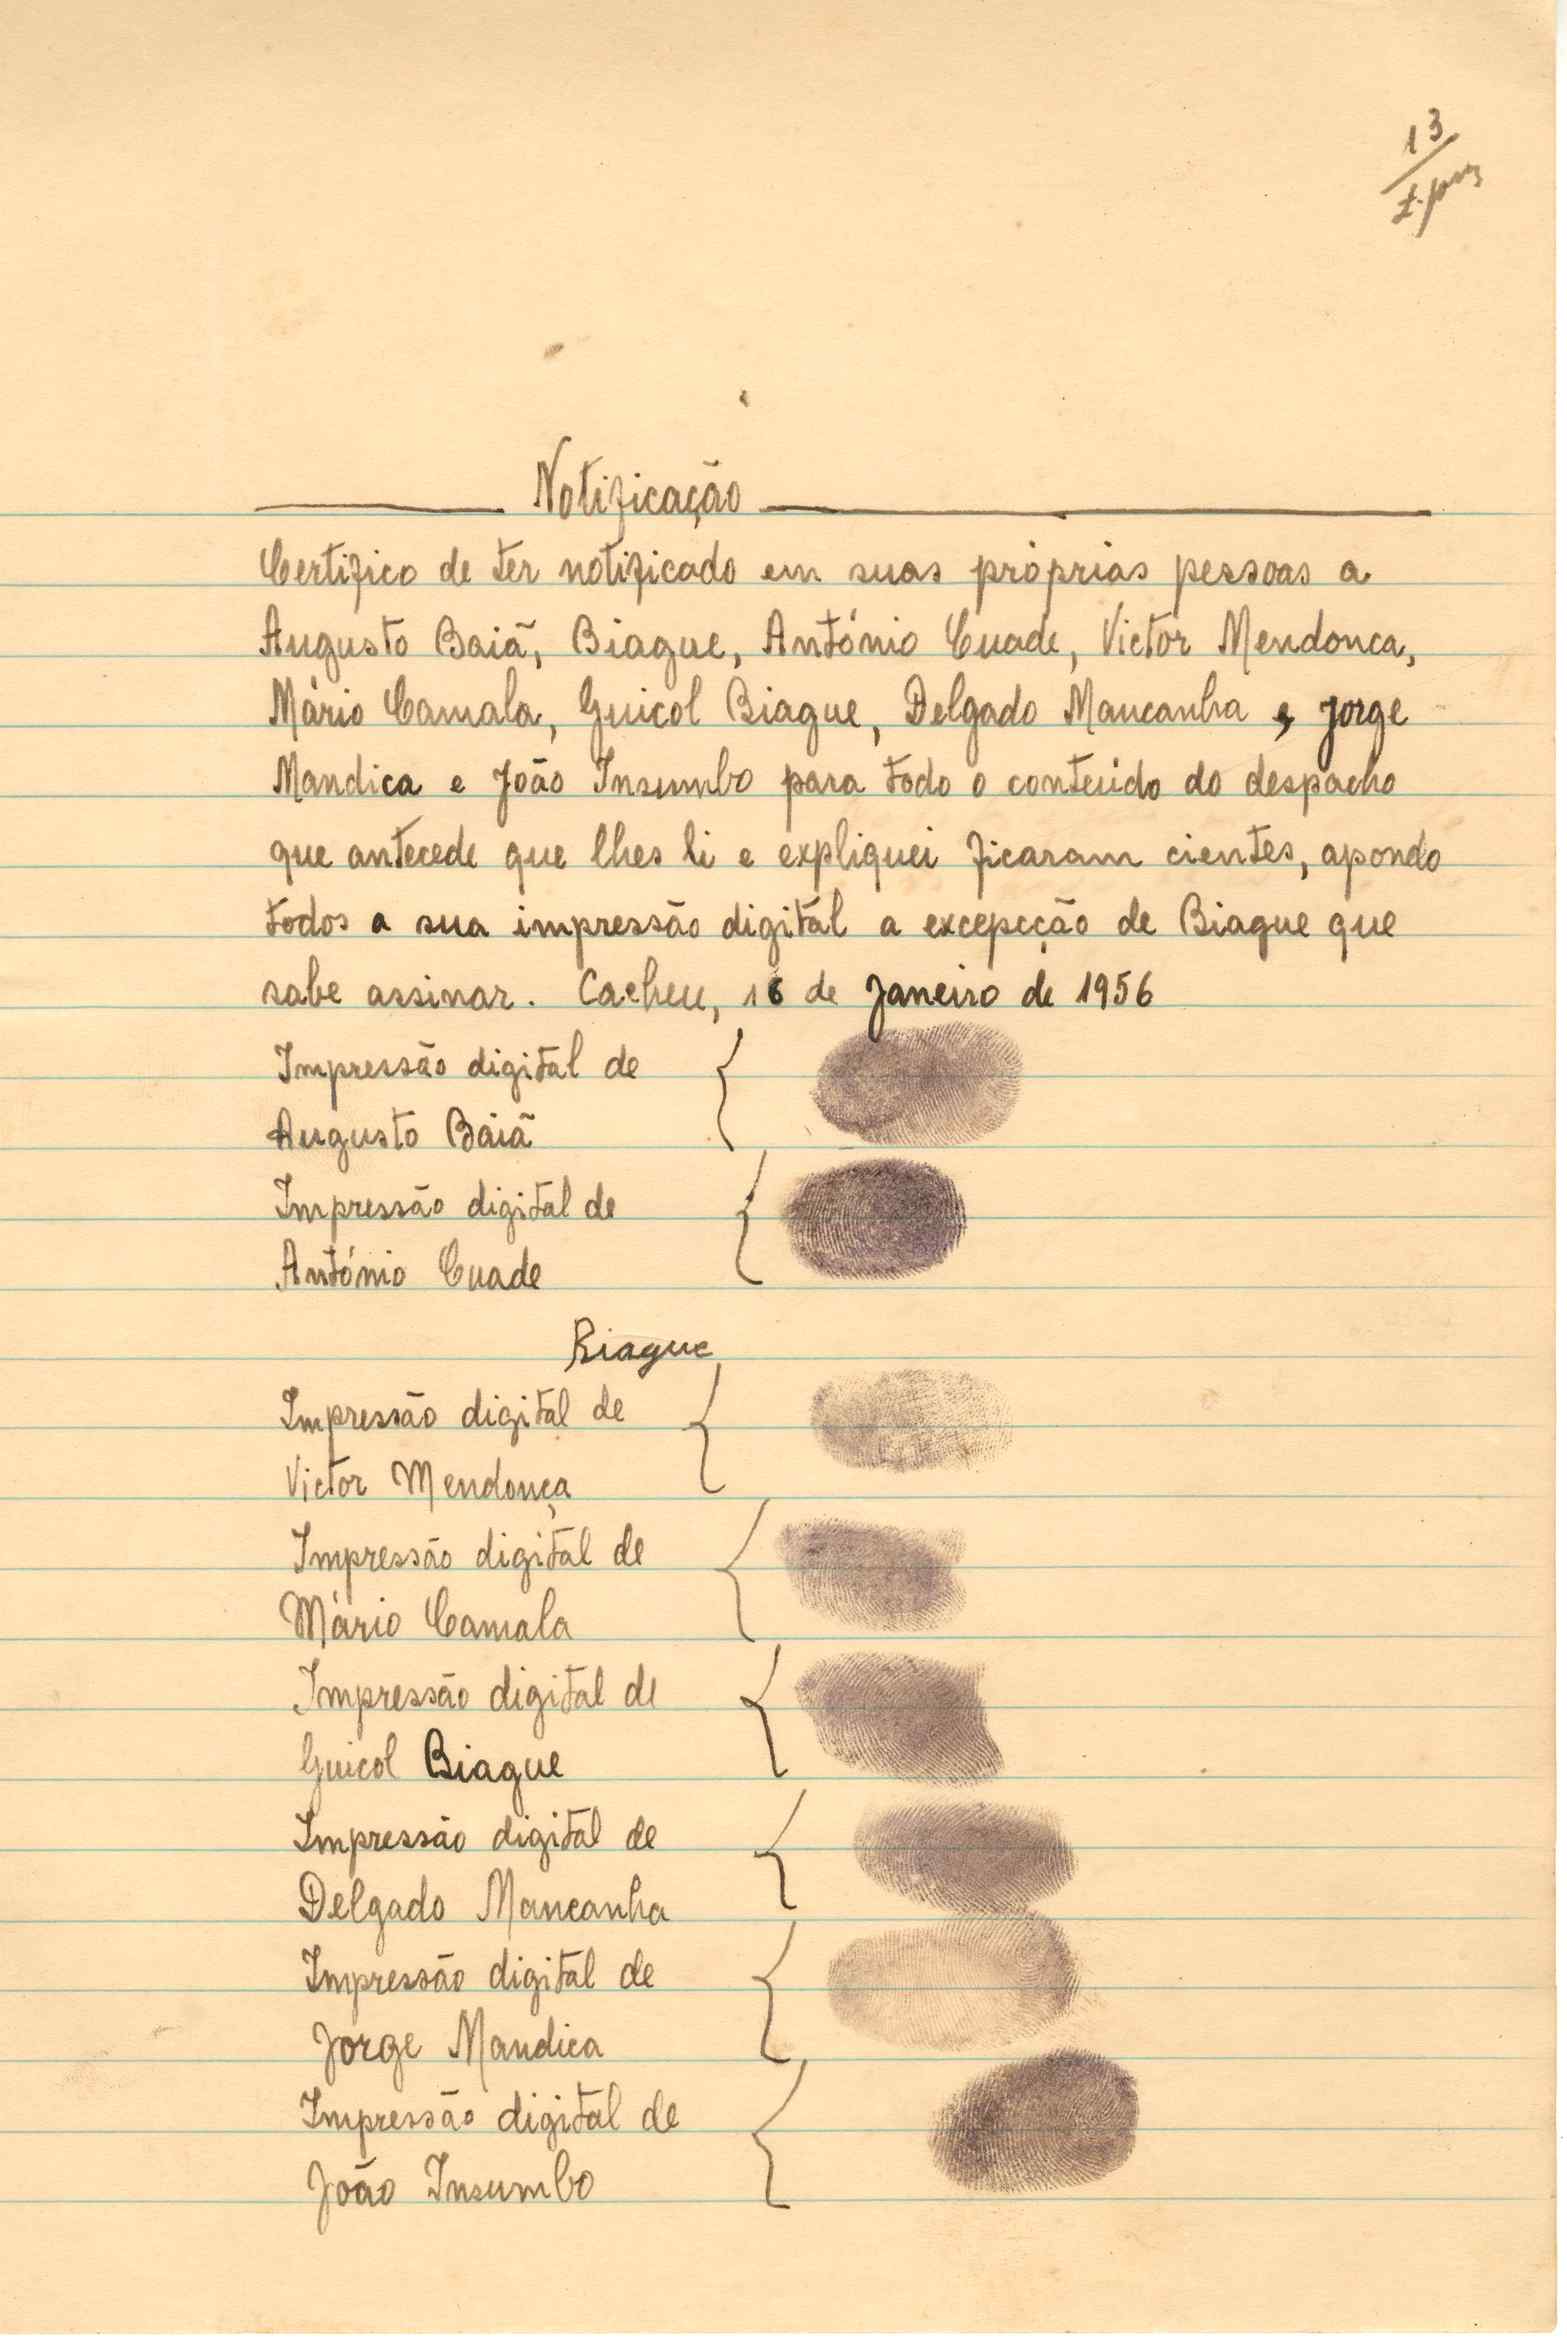 13
Notificação
Certifico de ter notificado em suas próprias pessoas a
Augusto Baiã, Biague, António Cuade, Victor Mendonca,
Mário Camala, Guicol Biague, Delgado Mancanha e, Jorge
Mandica e João Insumbo para todo o conteúdo do despacho
que antecede que lhes li e expliquei ficaram cientes, apondo
todos a sua impressão digitál a excepcção de Biague que
sabe assinar. Cacheu, 16 de Janeiro de 1956
Impressão digitál de
Augusto Baiã
Impressão digitál de
António Cuade
Biague
Impressão digitál de
Victor Mendonça
Impressão digitál de
Mário Camala
Impressão digitál de
Guicol Biague
Impressão digitál de
Delgado Mancanha
Impressão digitál de
Jorge Mandica
Impressão digitál de
João Insumbo